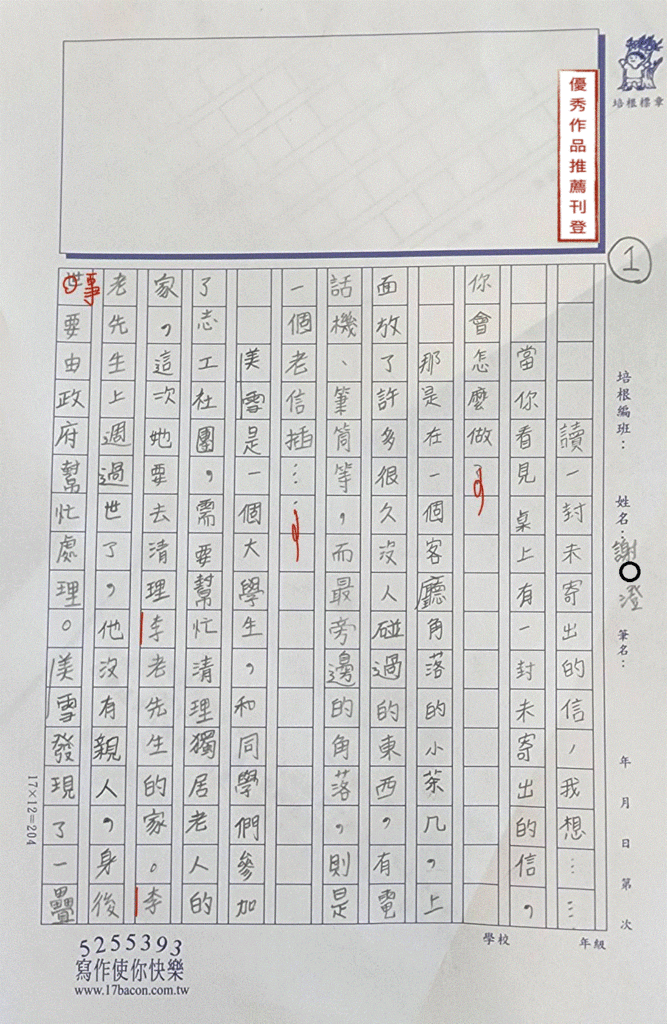 培根標章
優秀作品推薦刊登
1
培根編班：
姓名：謝 澄
筆名：
年 月 日 第 次
讀一封未寄出的信，我想……
當你看見桌上有一封未寄出的信，
你會怎麼做？
那是在一個客廳角落的小茶几，上
面放了許多很久沒人碰過的東西，有電
話機、筆筒等，而最旁邊的角落，則是
一個老信插……。
美雪是一個大學生，和同學們參加
了志工社團，需要幫忙清理獨居老人的
家，這次她要去清理李老先生的家。李
老先生上週過世了，他沒有親人，身後
事要由政府幫忙處理。美雪發現了一疊
17×12=204
學校
年級
5255393
寫作使你快樂
www.17bacon.com.tw